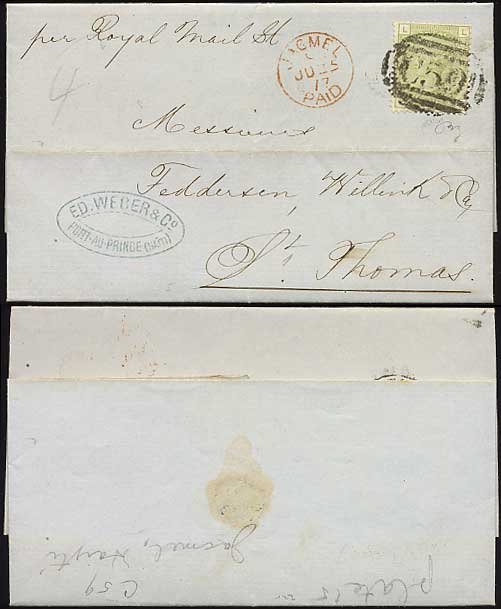 per Royal Mail St
JACMEL
C
JU 25
77
PAID
L L
C59
4
Messieurs
Feddersen, Willink & Co
ED. WEBER & Co
PORT-AU-PRINCE (HAÏTI)
St. Thomas.
Jacmel, Hayti
C59
plate 15